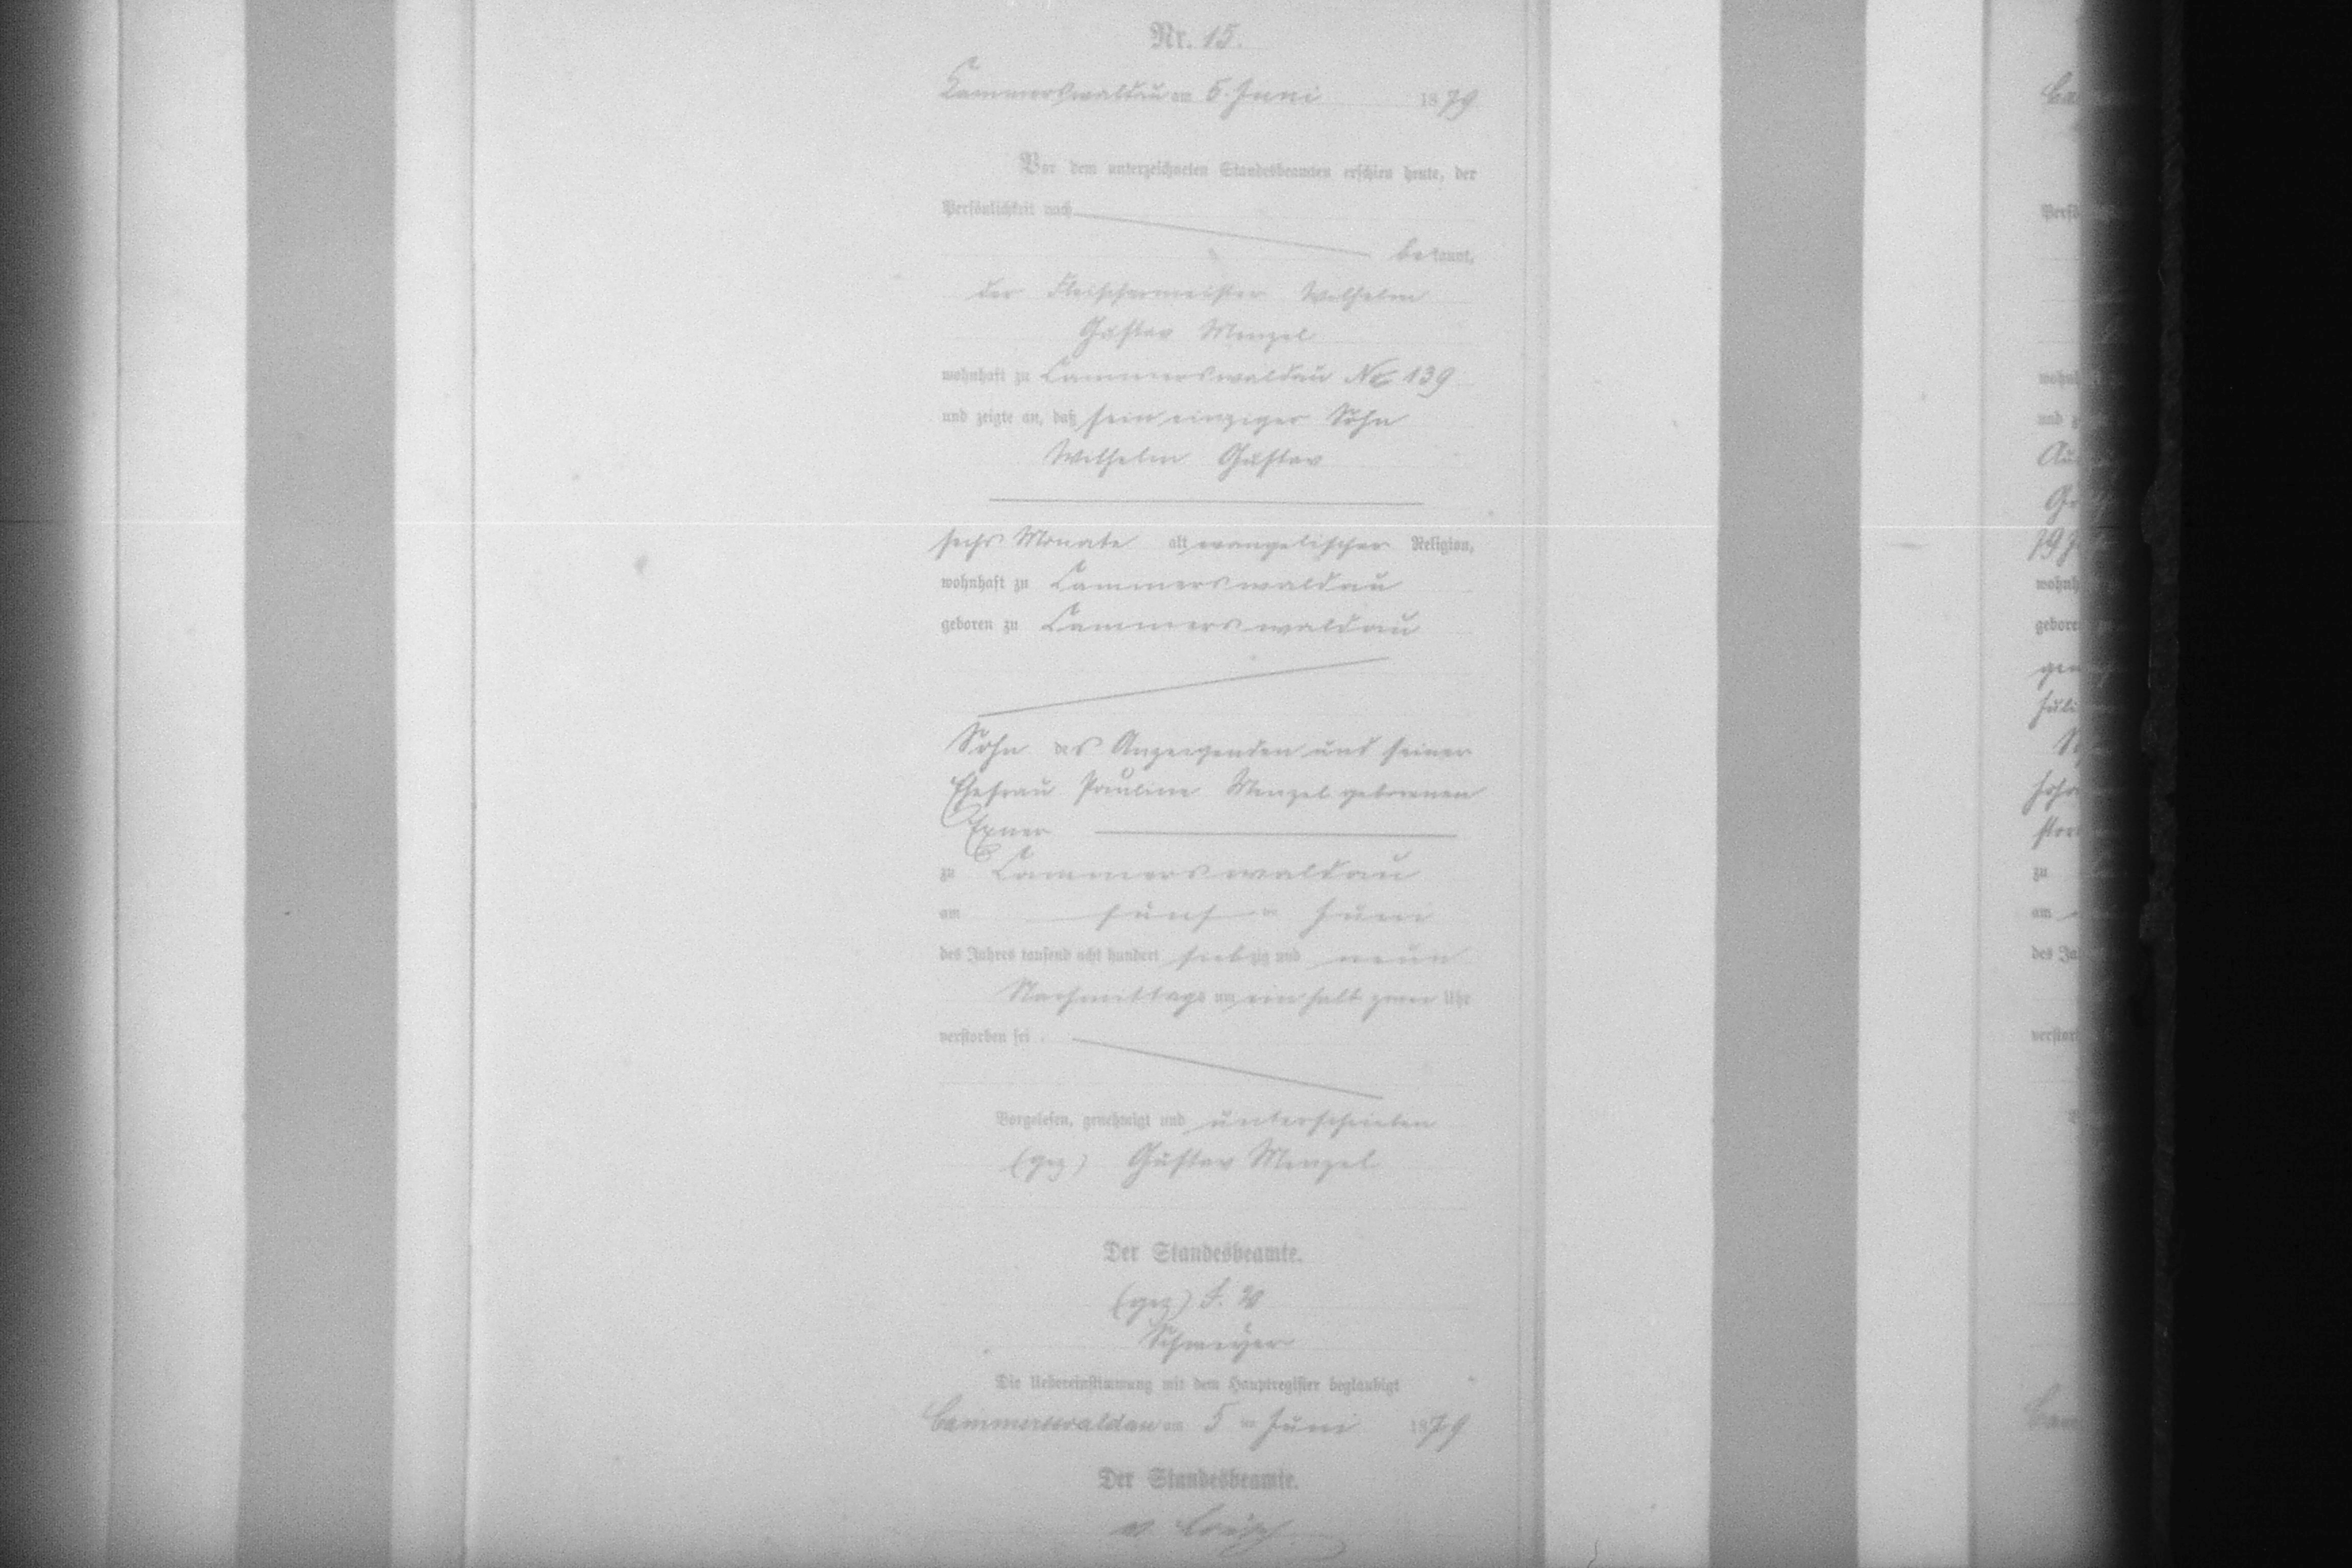 Nr. 15.
Cammerswaldau am 5. Juni 1879
Vor dem unterzeichneten Standesbeamten erschien heute, der
Persönlichkeit nach
bekannt,
der Fleischermeister Wilhelm
Gustav Menzel
wohnhaft zu Cammerswaldau No 139
und zeigte an, daß sein einziger Sohn
Wilhelm Gustav
sechs Monate alt, evangelischer Religion,
wohnhaft zu Cammerswaldau
geboren zu Cammerswaldau
Sohn des Anzeigenden und seiner
Ehefrau Pauline Menzel geborenen
Exner
zu Cammerswaldau
am fünften Juni
des Jahres tausend acht hundert siebzig und neun
Nachmittags um ein halb zwei Uhr
verstorben sei.
Vorgelesen, genehmigt und unterschrieben
(gez) Gustav Menzel
Der Standesbeamte.
(gez)
Die Uebereinstimmung mit dem Hauptregister beglaubigt
Cammerswaldau am 5ten Juni 1879
Der Standesbeamte.
wohnh
und
geboren
zu
am
des Ja
verstor